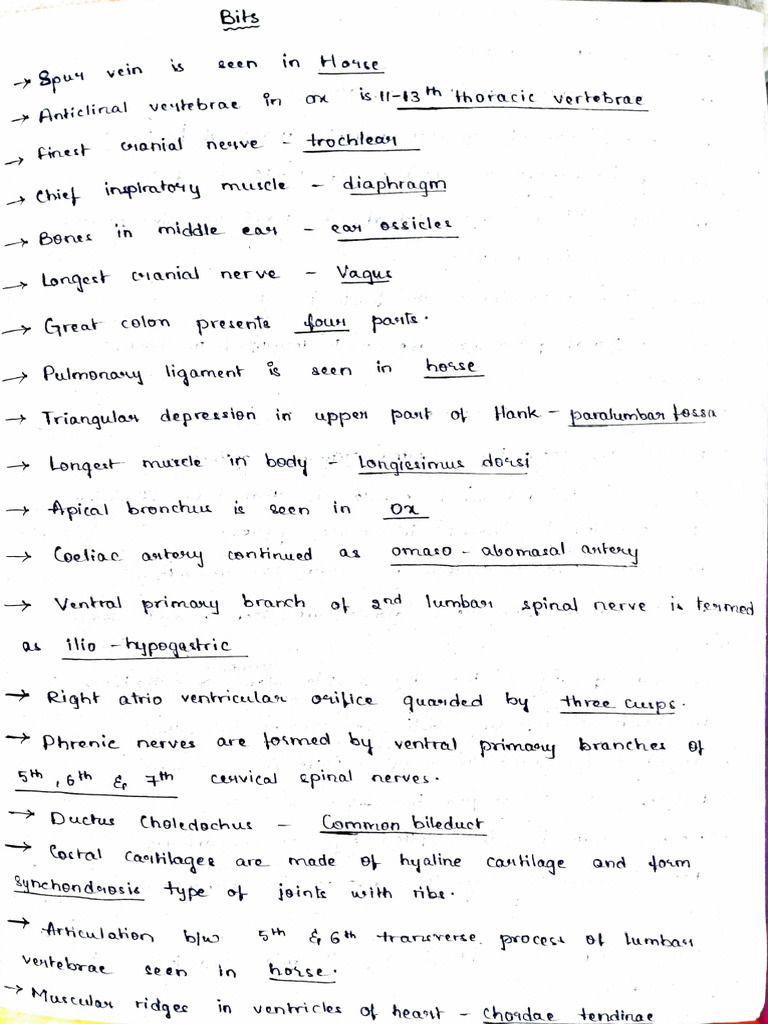 Bits
→ Spur vein is seen in Horse
→ Anticlinal vertebrae in ox is 11-13th thoracic vertebrae
→ finest cranial nerve - trochlear
→ Chief inspiratory muscle - diaphragm
→ Bones in middle ear - ear ossicles
→ Longest cranial nerve - Vagus
→ Great colon presents four parts.
→ Pulmonary ligament is seen in horse
→ Triangular depression in upper part of flank - paralumbar fossa
→ Longest muscle in body - Longissimus dorsi
→ Apical bronchus is seen in Ox
→ Coeliac artery continued as omaso - abomasal artery
→ Ventral primary branch of 2nd lumbar spinal nerve is termed
as ilio - hypogastric
→ Right atrio ventricular orifice guarded by three cusps.
→ Phrenic nerves are formed by ventral primary branches of
5th, 6th & 7th cervical spinal nerves.
→ Ductus Choledochus - Common bileduct
→ Costal cartilages are made of hyaline cartilage and form
synchondrosis type of joints with ribs.
→ Articulation b/w 5th & 6th transverse process of lumbar
vertebrae seen in horse.
→ Muscular ridges in ventricles of heart - Chordae tendinae